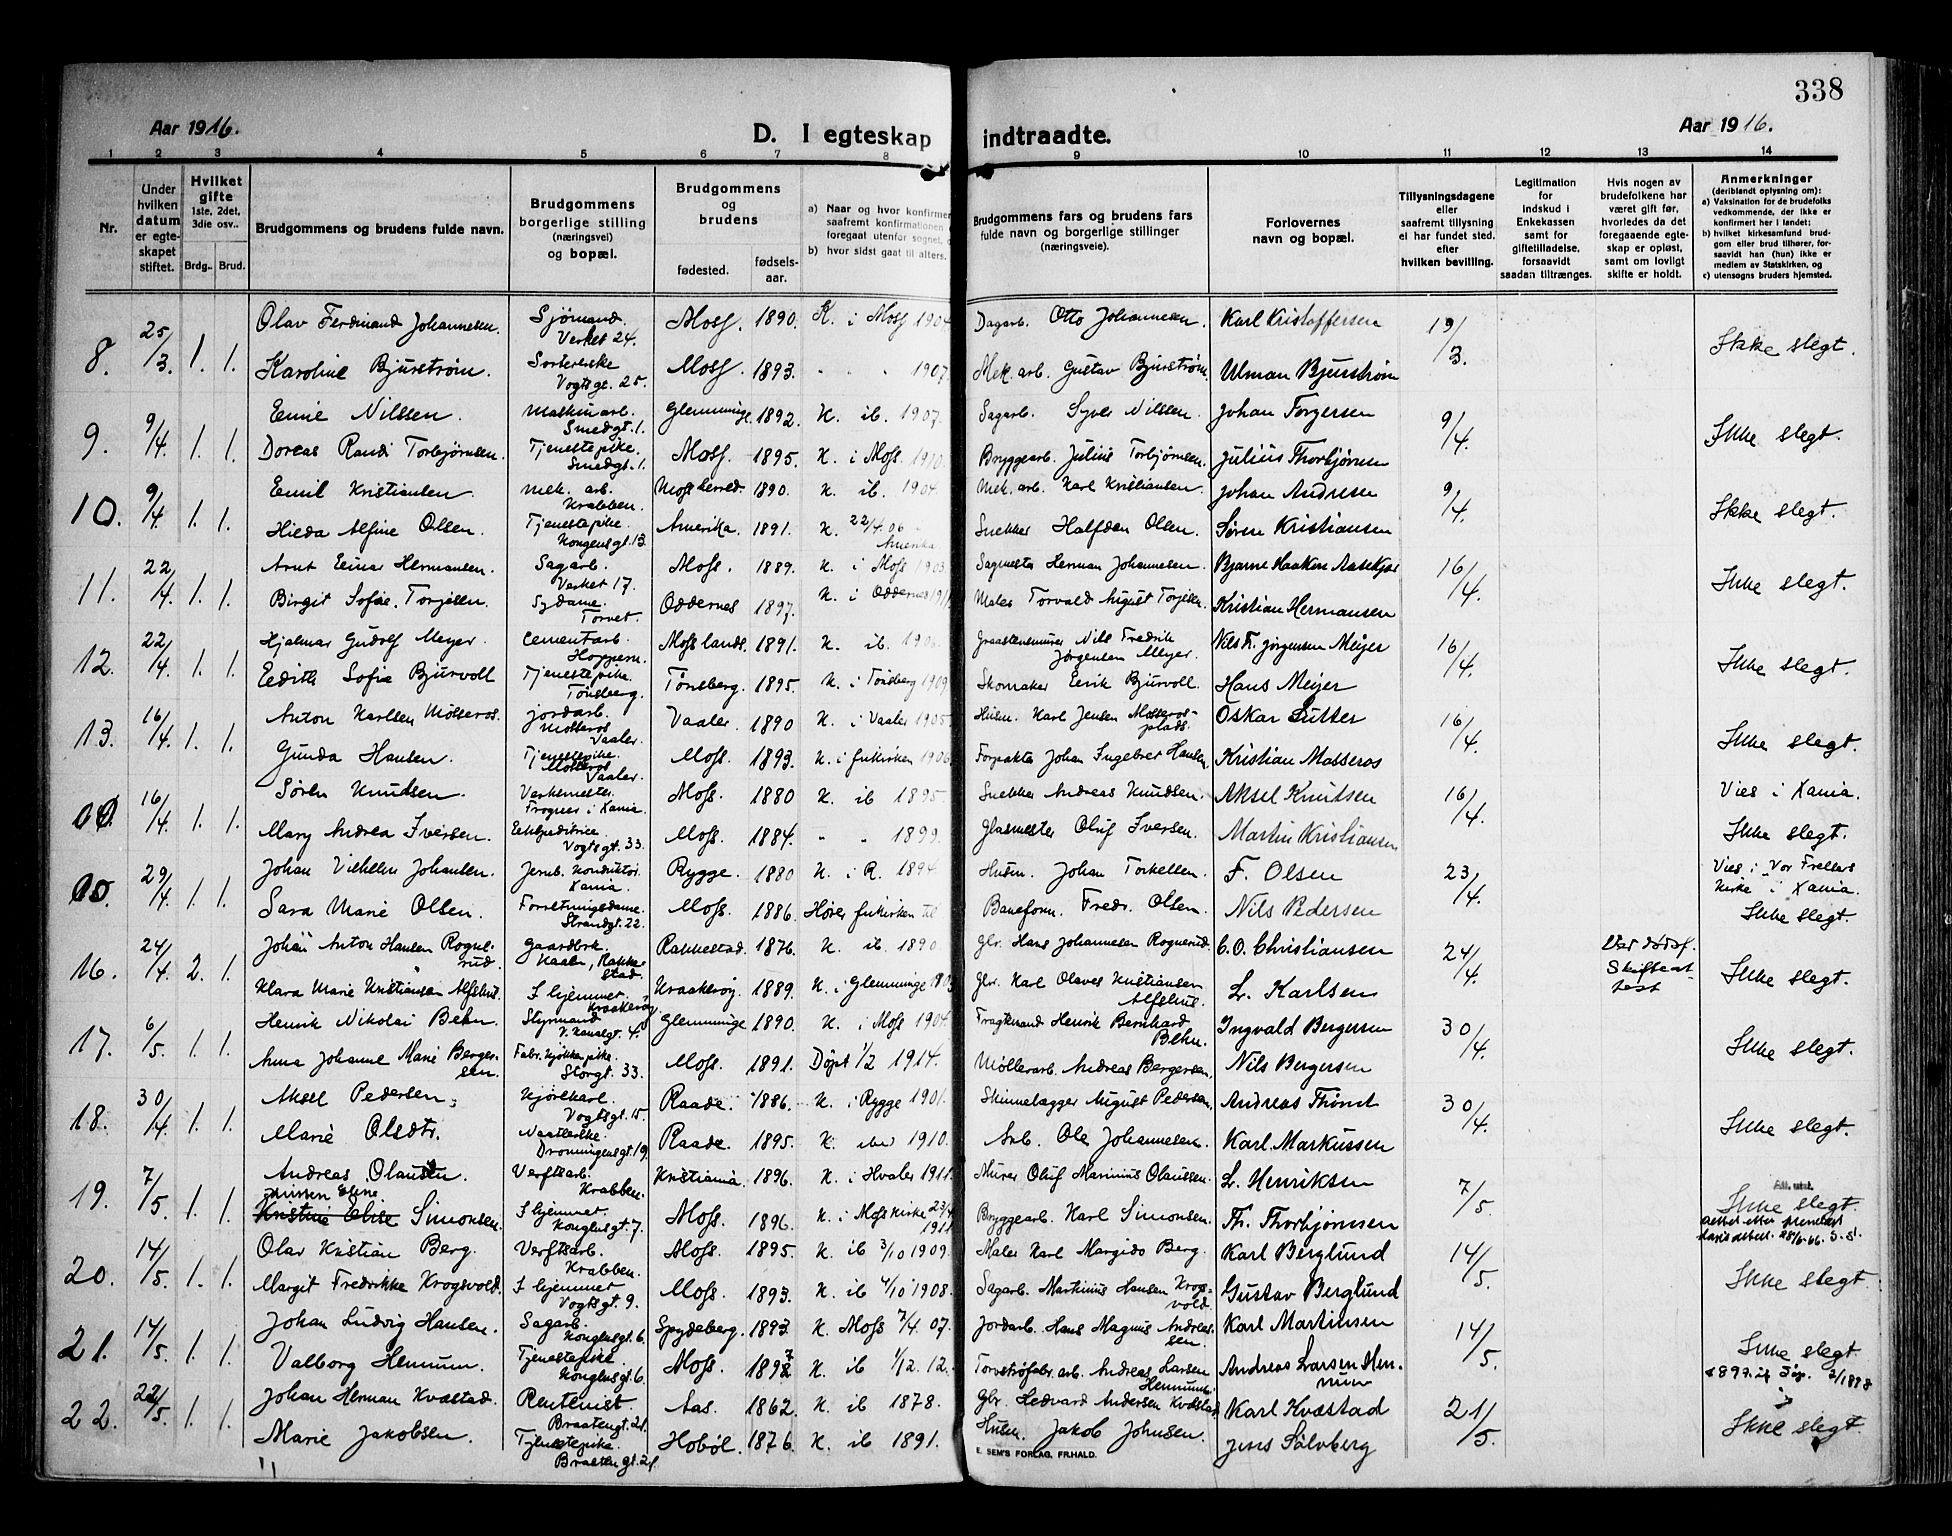 338
Aar 1916.
D. I egteskap indtraadte.
Aar 1916.
1 2 3 4 5 6 7 8 9 10 11 12 13 14
Nr.
Under hvilken datum er egteskapet stiftet.
Hvilket gifte 1ste, 2det, 3die osv..
Brdg.. Brud.
Brudgommens og brudens fulde navn.
Brudgommens borgerlige stilling (næringsvei) og bopæl.
Brudgommens og brudens
fødested. fødsels-aar.
a) Naar og hvor konfirmer
saafremt konfirmationen
foregaat utenfor sognet,
b) hvor sidst gaat til alters.
Brudgommens fars og brudens fars
fulde navn og borgerlige stillinger
(næringsveie).
Forlovernes
navn og bopæl.
Tillysningsdagene
eller
saafremt tillysning
ei har fundet sted.
efter
hvilken bevilling.
Legitimation
for
Indskud i
Enkekassen
samt for
giftetilladelse,
forsaavidt
saadan tiltrænges.
Hvis nogen av
brudefolkene har
været gift før,
hvorledes da det
foregaaende egte-
skap er opløst,
samt om lovligt
skifte er holdt.
Anmerkninger
(deriblandt oplysning om):
a) Vaksination for de brudefolks
vedkommende, der ikke er
konfirmert her i landet:
b) hvilket kirkesamfund brud-
gom eller brud tilhører, for-
saavidt han (hun) ikke er
medlem av Statskirken, og
c) utensogns bruders hjemsted.
8. 25/3 1. 1. Olav Ferdinand Johannesen. Sjømand. Verket 24. Moss. 1890. K. i Moss 1904 Dagarb. Otto Johannesen. Karl Kristoffersen 19/3. Ikke slegt.
Karoline Bjurstrøm. Vogtsgt. 25. Moss. 1893. " " " 1907 Mek. arb. Gustav Bjurstrøm. Ulman Bjurstrøm
9. 9/4. 1. 1. Nilssen. Maskinarb. Smedgt. 1. Glemminge. 1892. K. ib. 1907. Sagarb. Syver Nilssen. Johan Torgersen 9/4. Ikke slegt.
Dorcas Randi Torbjørnsen. Tjenestepike. Smedgt. 1. Moss. 1895. K. i Moss. 1910. Bryggearb. Julius Torbjørnsen. Julius Thorbjørnsen
10. 9/4. 1. 1. Emil Kristiansen. Mek. arb. Krabben. Moss herred. 1890. K. ib. 1904. Mek. arb. Karl Kristiansen. Johan Andresen 9/4. Ikke slegt.
Alfine Olsen. Tjenestepike. Kongensgt. 13. Amerika 1891. K. 22/4.06 Amerika Snekker Halfdan Olsen. Søren Kristiansen
11. 22/4. 1. 1. Einar Hermansen. Sagarb. Verket 17. Moss. 1889. K. i Moss 1903. Sagmester Herman Johannesen. Bjarne Haakon 16/4. Ikke slegt.
Birgit Sofie Torjesen. Sydame. Torvet. Oddernes 1897. K. i Oddernes Maler Torvald August Kristian Hermansen
12. 22/4. 1. 1. Hjalmar Gudolf Meyer. Cementarb. Hoppern. Moss lands. 1891. K. ib. 1906. Nils Fredrik Jørgensen Meyer. Nils F. Jørgensen Meijer 16/4. Ikke slegt.
Edith Sofie Bjurvoll Tjenestepike. Tønsberg. Tønsberg. 1895. K. i Tønsberg 1909 Skomaker Erik Bjurvoll. Hans Meijer
13. 16/4. 1. 1. Anton Karlsen Mosseros. Jordarb. Mosseros Vaaler. Vaaler. 1890 K. i Vaaler 1905 Husm. Karl Jensen Mosserosplads. Oskar Sutter 16/4. Ikke slegt.
Gunda Hansen. Tjenestepike. Mosseros Vaaler. Moss. 1893. K. i frikirken 1906 Forpakter Johan Ingebret Hansen. Kristian Mosseros
16/4. 1. 1. Søren Knudsen. Verksmester. Frogner i Xania. Moss. 1880 K. ib 1895. Snekker Andreas Knudsen. Aksel Knudsen 16/4. Vies i Xania.
Mary Andrea Iversen. Vogtsgt. 33. Moss. 1884. " " 1899. Glasmester Oluf Iversen. Martin Kristiansen Ikke slegt.
29/4. 1. 1. Johan Vilhelm Johansen. Jernb. konduktør. Xania. Rygge. 1880 K. i R. 1894 Husm. Johan Torkelsen. F. Olsen 23/4. Vies i Vor Frelsers Kirke i Xania.
Sara Marie Olsen. Forretningsdame. Strandgt. 22. Moss. 1886. Hører frikirken til Baneform. Fredr. Olsen Nils Pedersen Ikke slegt.
16. 24/4. 2. 1. Johan Anton Hansen Rognerud. Gaardbrk. Rakkestad Rakkestad. 1876. K. ib. 1890. Gbr. Hans Johannesen Rognerud. C.O. Christiansen 24/4. Skifteattest Ikke slegt.
Klara Marie Kristiansen I hjemmet. Kraakerøy Kraakerøy. 1889. K. i Glemminge 1903 Gbr. Karl Olaves Kristiansen L. Karlsen
17. 6/5. 1. 1. Henrik Nikolai Behn. Styrmand. Glemminge 1890. K. i Moss 1904. Henrik Bernhard Behn. Ingvald Bergersen 30/4. Ikke slegt.
Anna Johanne Marie Bergersen. Storgt. 33. Moss. 1891. Døpt 1/2 1914. Møllerarb. Andreas Bergersen. Nils Bergersen
18. 30/4. 1. 1. Aksel Pedersen. Kjørekarl. Vogtsgt. 15. Raade. 1886. K. i Rygge 1901. August Pedersen. Andreas 30/4. Ikke slegt.
Marie Olsdtr. Dronningensgt. 19. Raade. 1895. K. ibid 1910. Arb. Ole Johannesen. Karl Markussen
19. 7/5. 1. 1. Andreas Olaussen. Verftsarb. Krabben. Kristiania 1896. K. i Hvaler 1911. Murer Oluf Marinius Olaussen. L. Henriksen 7/5. Ikke slegt.
Kristine Elise Simonsen. I hjemmet. Kongensgt. 7. Moss. 1896. K. i Moss kirke 1911 Bryggearb. Karl Simonsen. Th. Thorbjørnsen
20. 14/5. 1. 1. Olav Kristian Berg. Verftsarb. Krabben. Moss. 1895. K. ib 3/10 1909. Maler Karl Margido Berg. Karl Berglund 14/5. Ikke slegt.
Margit Fredrikke Krogsvold. I hjemmet Vogtsgt. 9. Moss. 1893. K. ib 4/10 1908. Sagarb. Martinius Hansen Krogsvold. Gustav Berglund
21. 14/5. 1. 1. Johan Ludvig Hansen. Sagarb. Kongensgt. 6. Spydeberg. 1893. K. Moss 7/4. 07. Jordarb. Hans Magnus Andreassen. Karl Martinsen 14/5. Ikke slegt.
Valborg Hennum. Tjenestepike. Kongensgt. 6. Moss. K. ib 1/12. 12. Andreas Larsen Hennum. Andreas Larsen Hennum
22. 22/5. 1. 1. Johan Herman Kvæstad. Rentenist. Braatengt. 21. Aas. 1862. K. ib 1878. Gbr. Hedvard Andersen Kvæstad Karl Kvæstad 21/5. Ikke slegt.
Marie Jakobsen. Tjenestepike. Braatengt. 21. Hobøl. 1876. K. ib 1891. Husm. Jakob Johnsen. Jens Sølvberg
E. SEM'S FORLAG, FR.HALD.